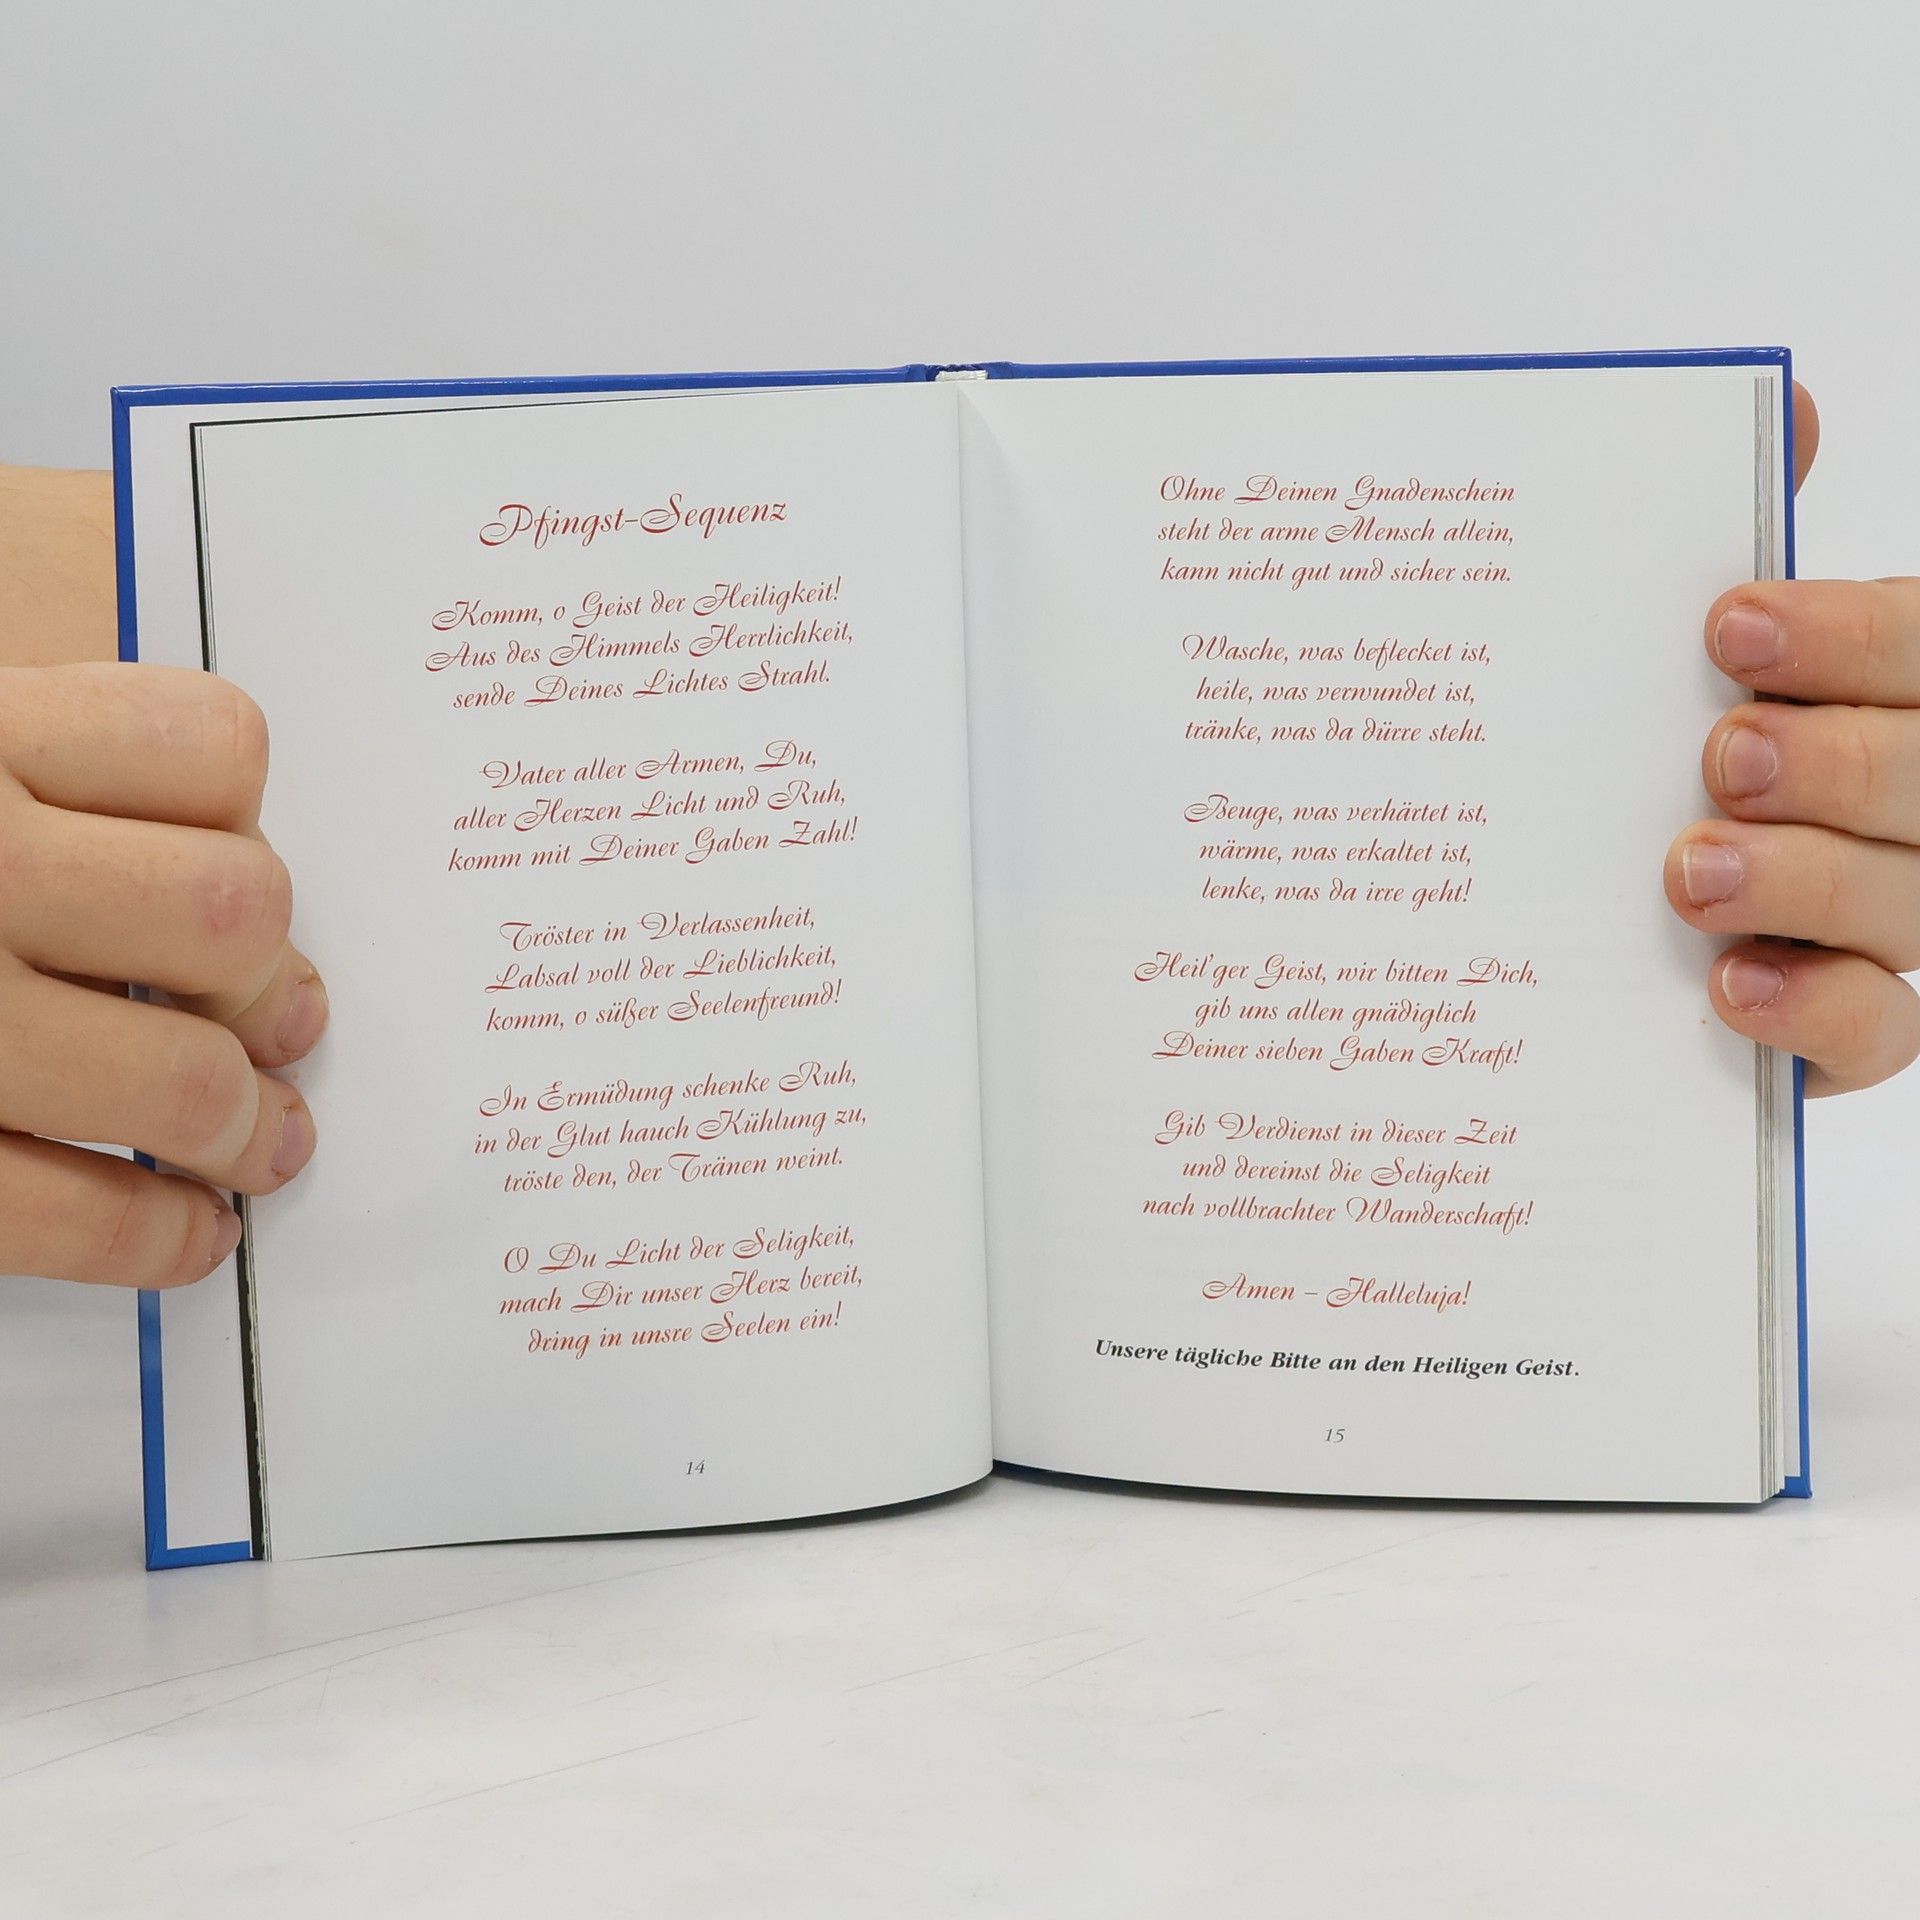 Pfingst-Sequenz
Komm, o Geist der Heiligkeit!
Aus des Himmels Herrlichkeit,
sende Deines Lichtes Strahl.
Vater aller Armen, Du,
aller Herzen Licht und Ruh,
komm mit Deiner Gaben Zahl!
Tröster in Verlassenheit,
Labsal voll der Lieblichkeit,
komm, o süßer Seelenfreund!
In Ermüdung schenke Ruh,
in der Glut hauch Kühlung zu,
tröste den, der Tränen weint.
O Du Licht der Seligkeit,
mach Dir unser Herz bereit,
dring in unsre Seelen ein!
14
Ohne Deinen Gnadenschein
steht der arme Mensch allein,
kann nicht gut und sicher sein.
Wasche, was beflecket ist,
heile, was verwundet ist,
tränke, was da dürre steht.
Beuge, was verhärtet ist,
wärme, was erkaltet ist,
lenke, was da irre geht!
Heil'ger Geist, wir bitten Dich,
gib uns allen gnädiglich
Deiner sieben Gaben Kraft!
Gib Verdienst in dieser Zeit
und dereinst die Seligkeit
nach vollbrachter Wanderschaft!
Amen – Halleluja!
Unsere tägliche Bitte an den Heiligen Geist.
15